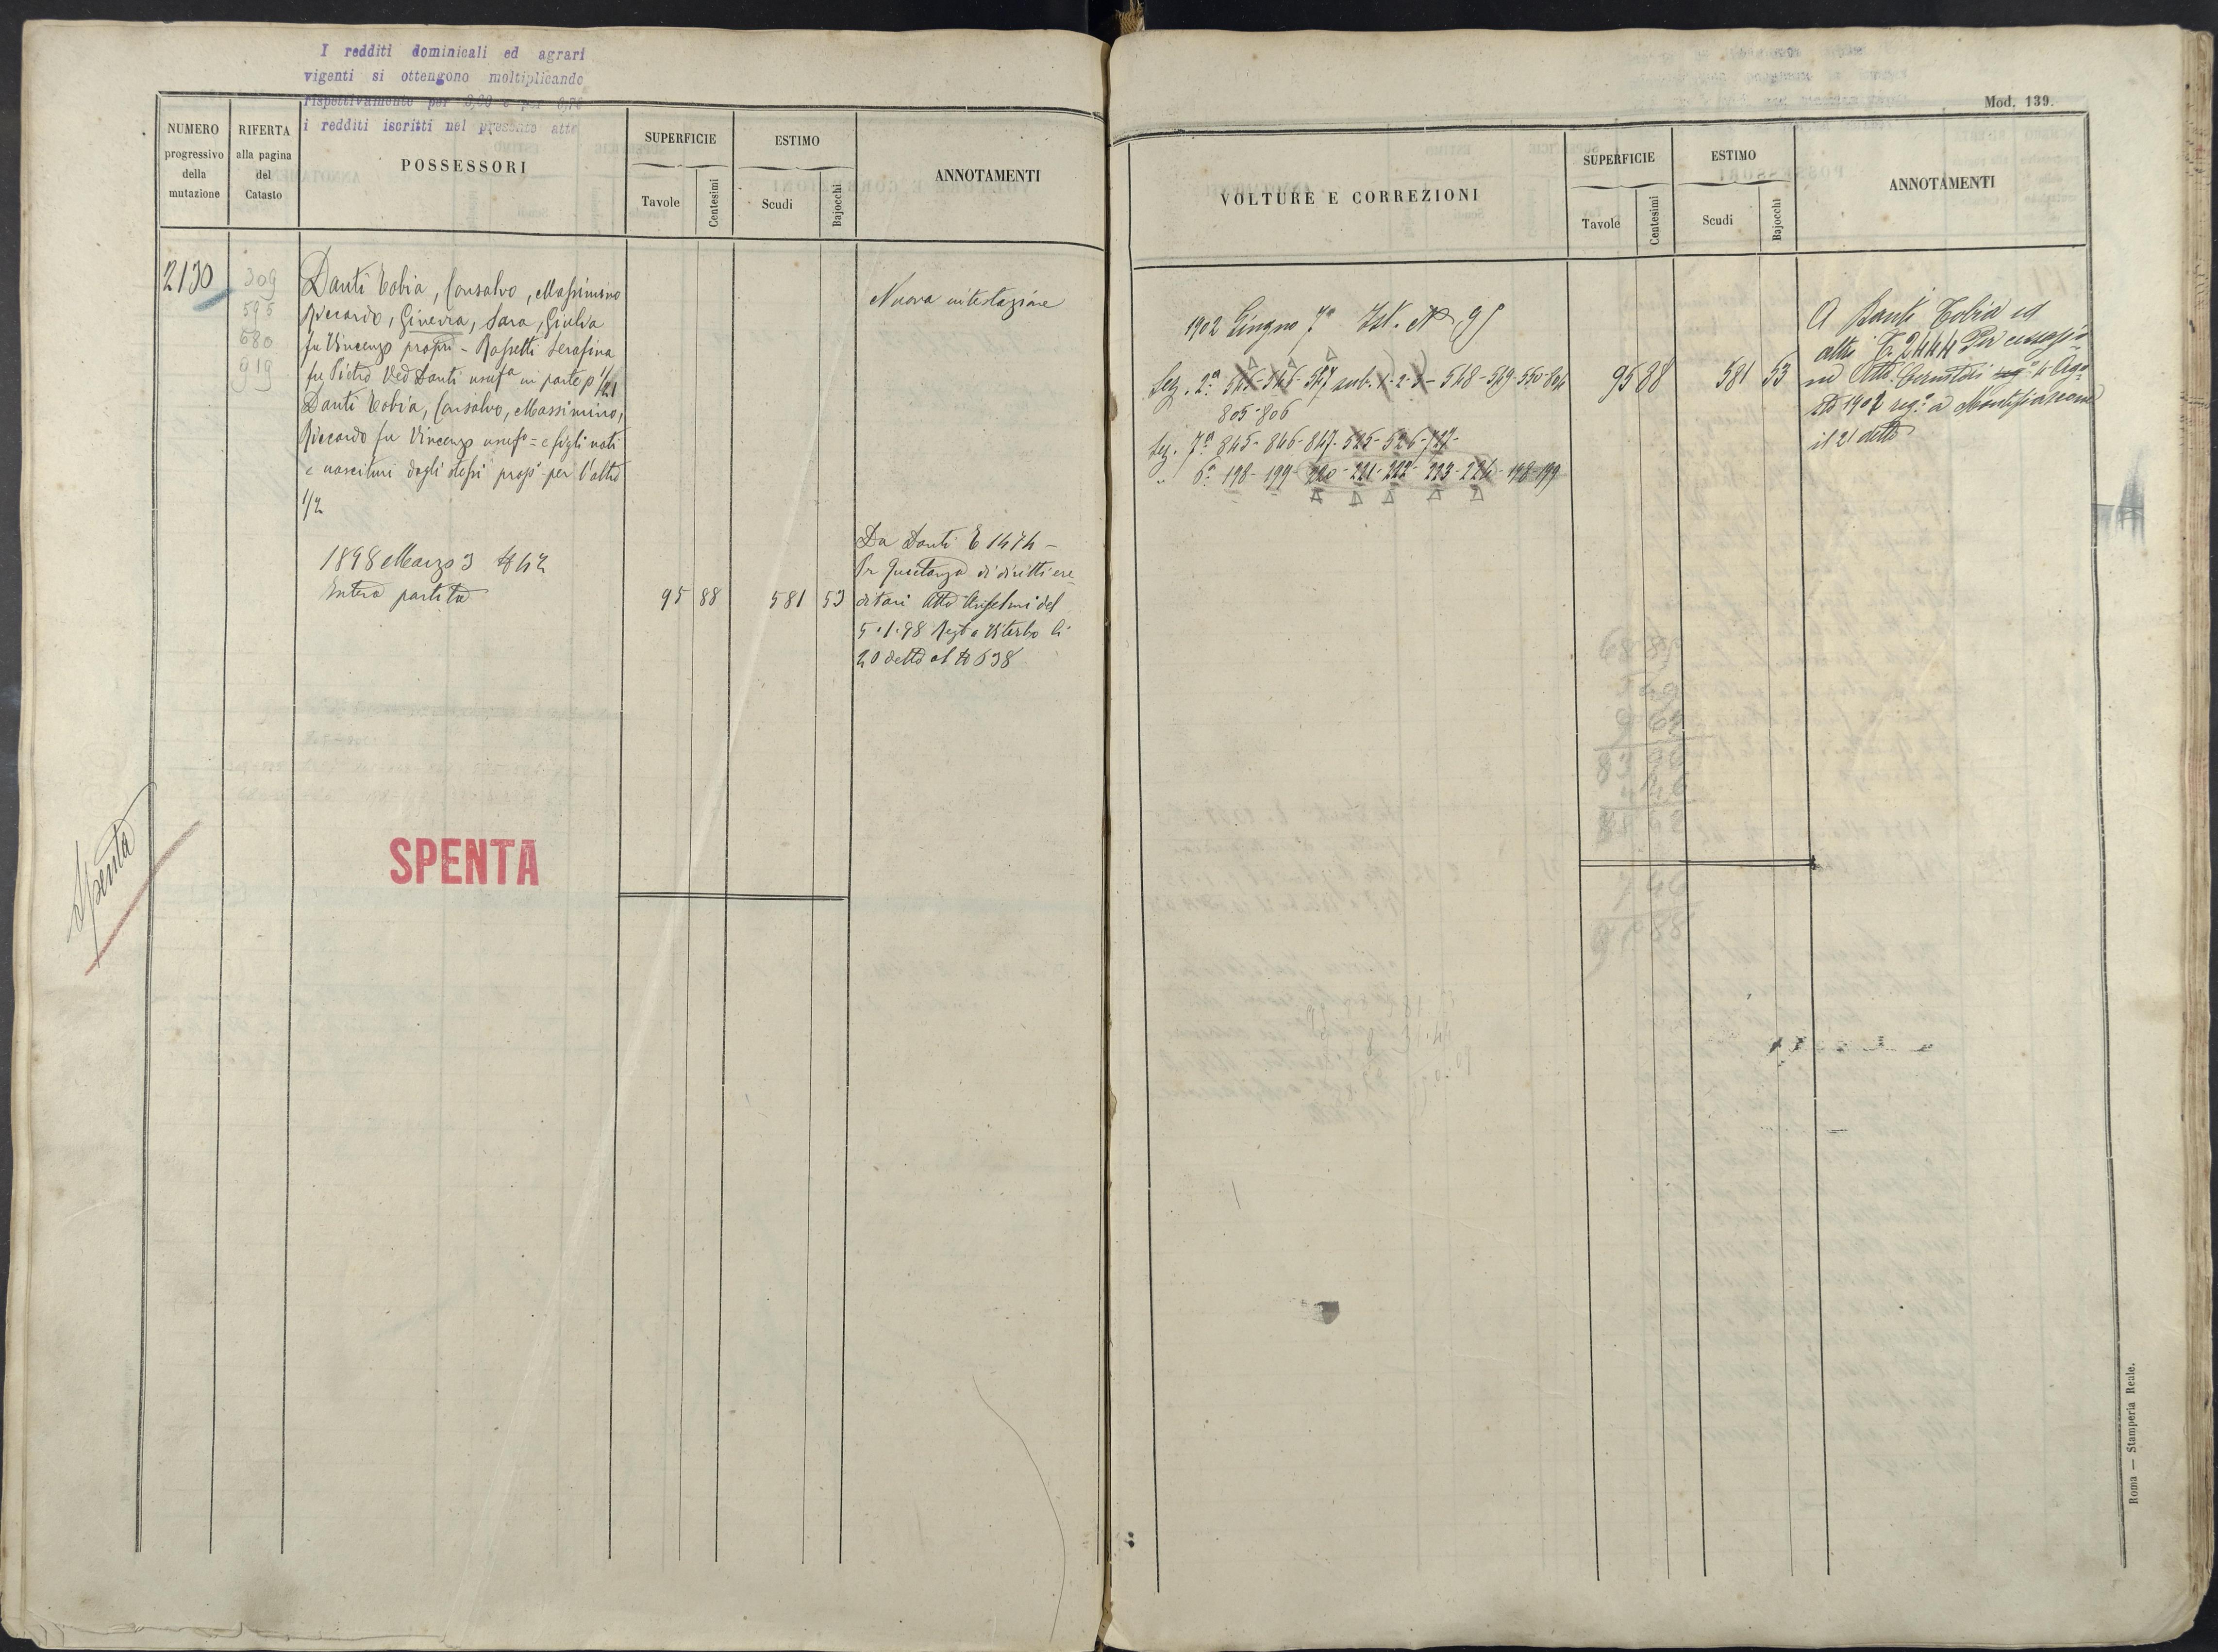 I redditi dominicali ed agrari
vigenti si ottengono moltiplicando
rispettivamente per e per
i redditi iscritti nel presente atto
NUMERO
progressivo
della
mutazione
RIFERTA
alla pagina
del
Catasto
POSSESSORI
SUPERFICIE
Tavole
Centesimi
ESTIMO
Scudi
Bajocchi
ANNOTAMENTI
2130
309
595
680
919
Danti Tobia, Consalvo, Massimino
Riccardo, Ginevra, Sara, Giulia
fu Vincenzo propri - Rossetti Serafina
fu Pietro Ved Danti usufa in parte p 1/21
Danti Tobia, Consalvo, Massimino,
Riccardo fu Vincenzo usufo = e figli nati
e nascituri dagli stessi propi per l'altro
1/2
Nuova intestazione
1898 Marzo 3 N 42
Intera partita
95 88 581 53
Da Danti T 1474 -
Per Quietanza di diritti ere
ditari Atto Anselmi del
5.1.98 Regto a Viterbo li
20 detto al N 638
SPENTA
Spenta
Mod. 139.
VOLTURE E CORREZIONI
SUPERFICIE
Tavole
Centesimi
ESTIMO
Scudi
Bajocchi
ANNOTAMENTI
1902 Giugno 7 Ist. N 95
Sez. 2a 545-546-547 sub. 1-2-3-548-549-550-804
805-806
Sez. 7a 845-846-847-525-526-727-
" 6a 198-199-220-221-222-223-224-198-199
95 88 581 53
A Danti Tobia ed
altri T. 2444 Per cessio
ne Atto 4 Ago
sto 1902 rego a Montefiascone
il 21 detto
Roma — Stamperia Reale.